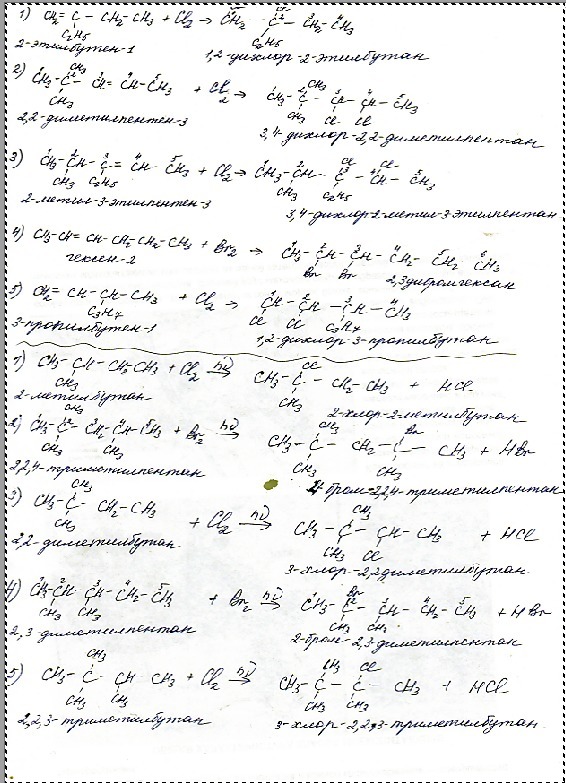 1) CH₂ = C - CH₂ - CH₃ + Cl₂ → CH₂ C - CH₂ - CH₃
C₂H₅ C₂H₅
2-этилбутен-1 1,2-дихлор-2-этилбутан
CH₃ CH₃
2) CH₃ - C - CH = CH - CH₃ + Cl₂ → CH₃ - C - CH - CH - CH₃
CH₃ CH₃ Cl Cl
2,2-диметилпентен-3 3,4-дихлор-2,2-диметилпентан
Cl Cl
3) CH₃ - CH - C = CH CH₃ + Cl₂ → CH₃ - CH - C - CH - CH₃
CH₃ C₂H₅ CH₃ C₂H₅
2-метил-3-этилпентен-3 3,4-дихлор-2-метил-3-этилпентан
4) CH₃ - CH = CH - CH₂ - CH₂ - CH₃ + Br₂ → CH₃ - CH - CH - CH₂ - CH₂ CH₃
Br Br
гексен-2 2,3дибромгексан
5) CH₂ = CH - CH - CH₃ + Cl₂ → CH - CH - CH - CH₃
C₃H₇ Cl Cl C₃H₇
3-пропилбутен-1 1,2-дихлор-3-пропилбутан
Cl
1) CH₃ - CH - CH₂ CH₃ + Cl₂ hν → CH₃ - C - CH₂ - CH₃ + HCl
CH₃ CH₃
2-метилбутан 2-хлор-2-метилбутан
CH₃ CH₃ Br
2) CH₃ - C - CH₂ - CH - CH₃ + Br₂ hν → CH₃ - C - CH₂ - C - CH₃ + HBr
CH₃ CH₃ CH₃ CH₃
2,2,4-триметилпентан бром-2,2,4-триметилпентан
CH₃ CH₃
3) CH₃ - C - CH₂ - CH₃ + Cl₂ hν → CH₃ - C - CH - CH₃ + HCl
CH₃ CH₃ Cl
2,2-диметилбутан 3-хлор-2,2диметилбутан
Br
4) CH₃ - CH - CH - CH₂ - CH₃ + Br₂ hν → CH₃ - C - CH - CH₂ - CH₃ + HBr
CH₃ CH₃ CH₃ CH₃
2,3-диметилпентан 2-бром-2,3-диметилпентан
CH₃ CH₃ Cl
5) CH₃ - C - CH CH₃ + Cl₂ hν → CH₃ - C - C - CH₃ + HCl
CH₃ CH₃ CH₃ CH₃
2,2,3-триметилбутан 3-хлор-2,2,3-триметилбутан